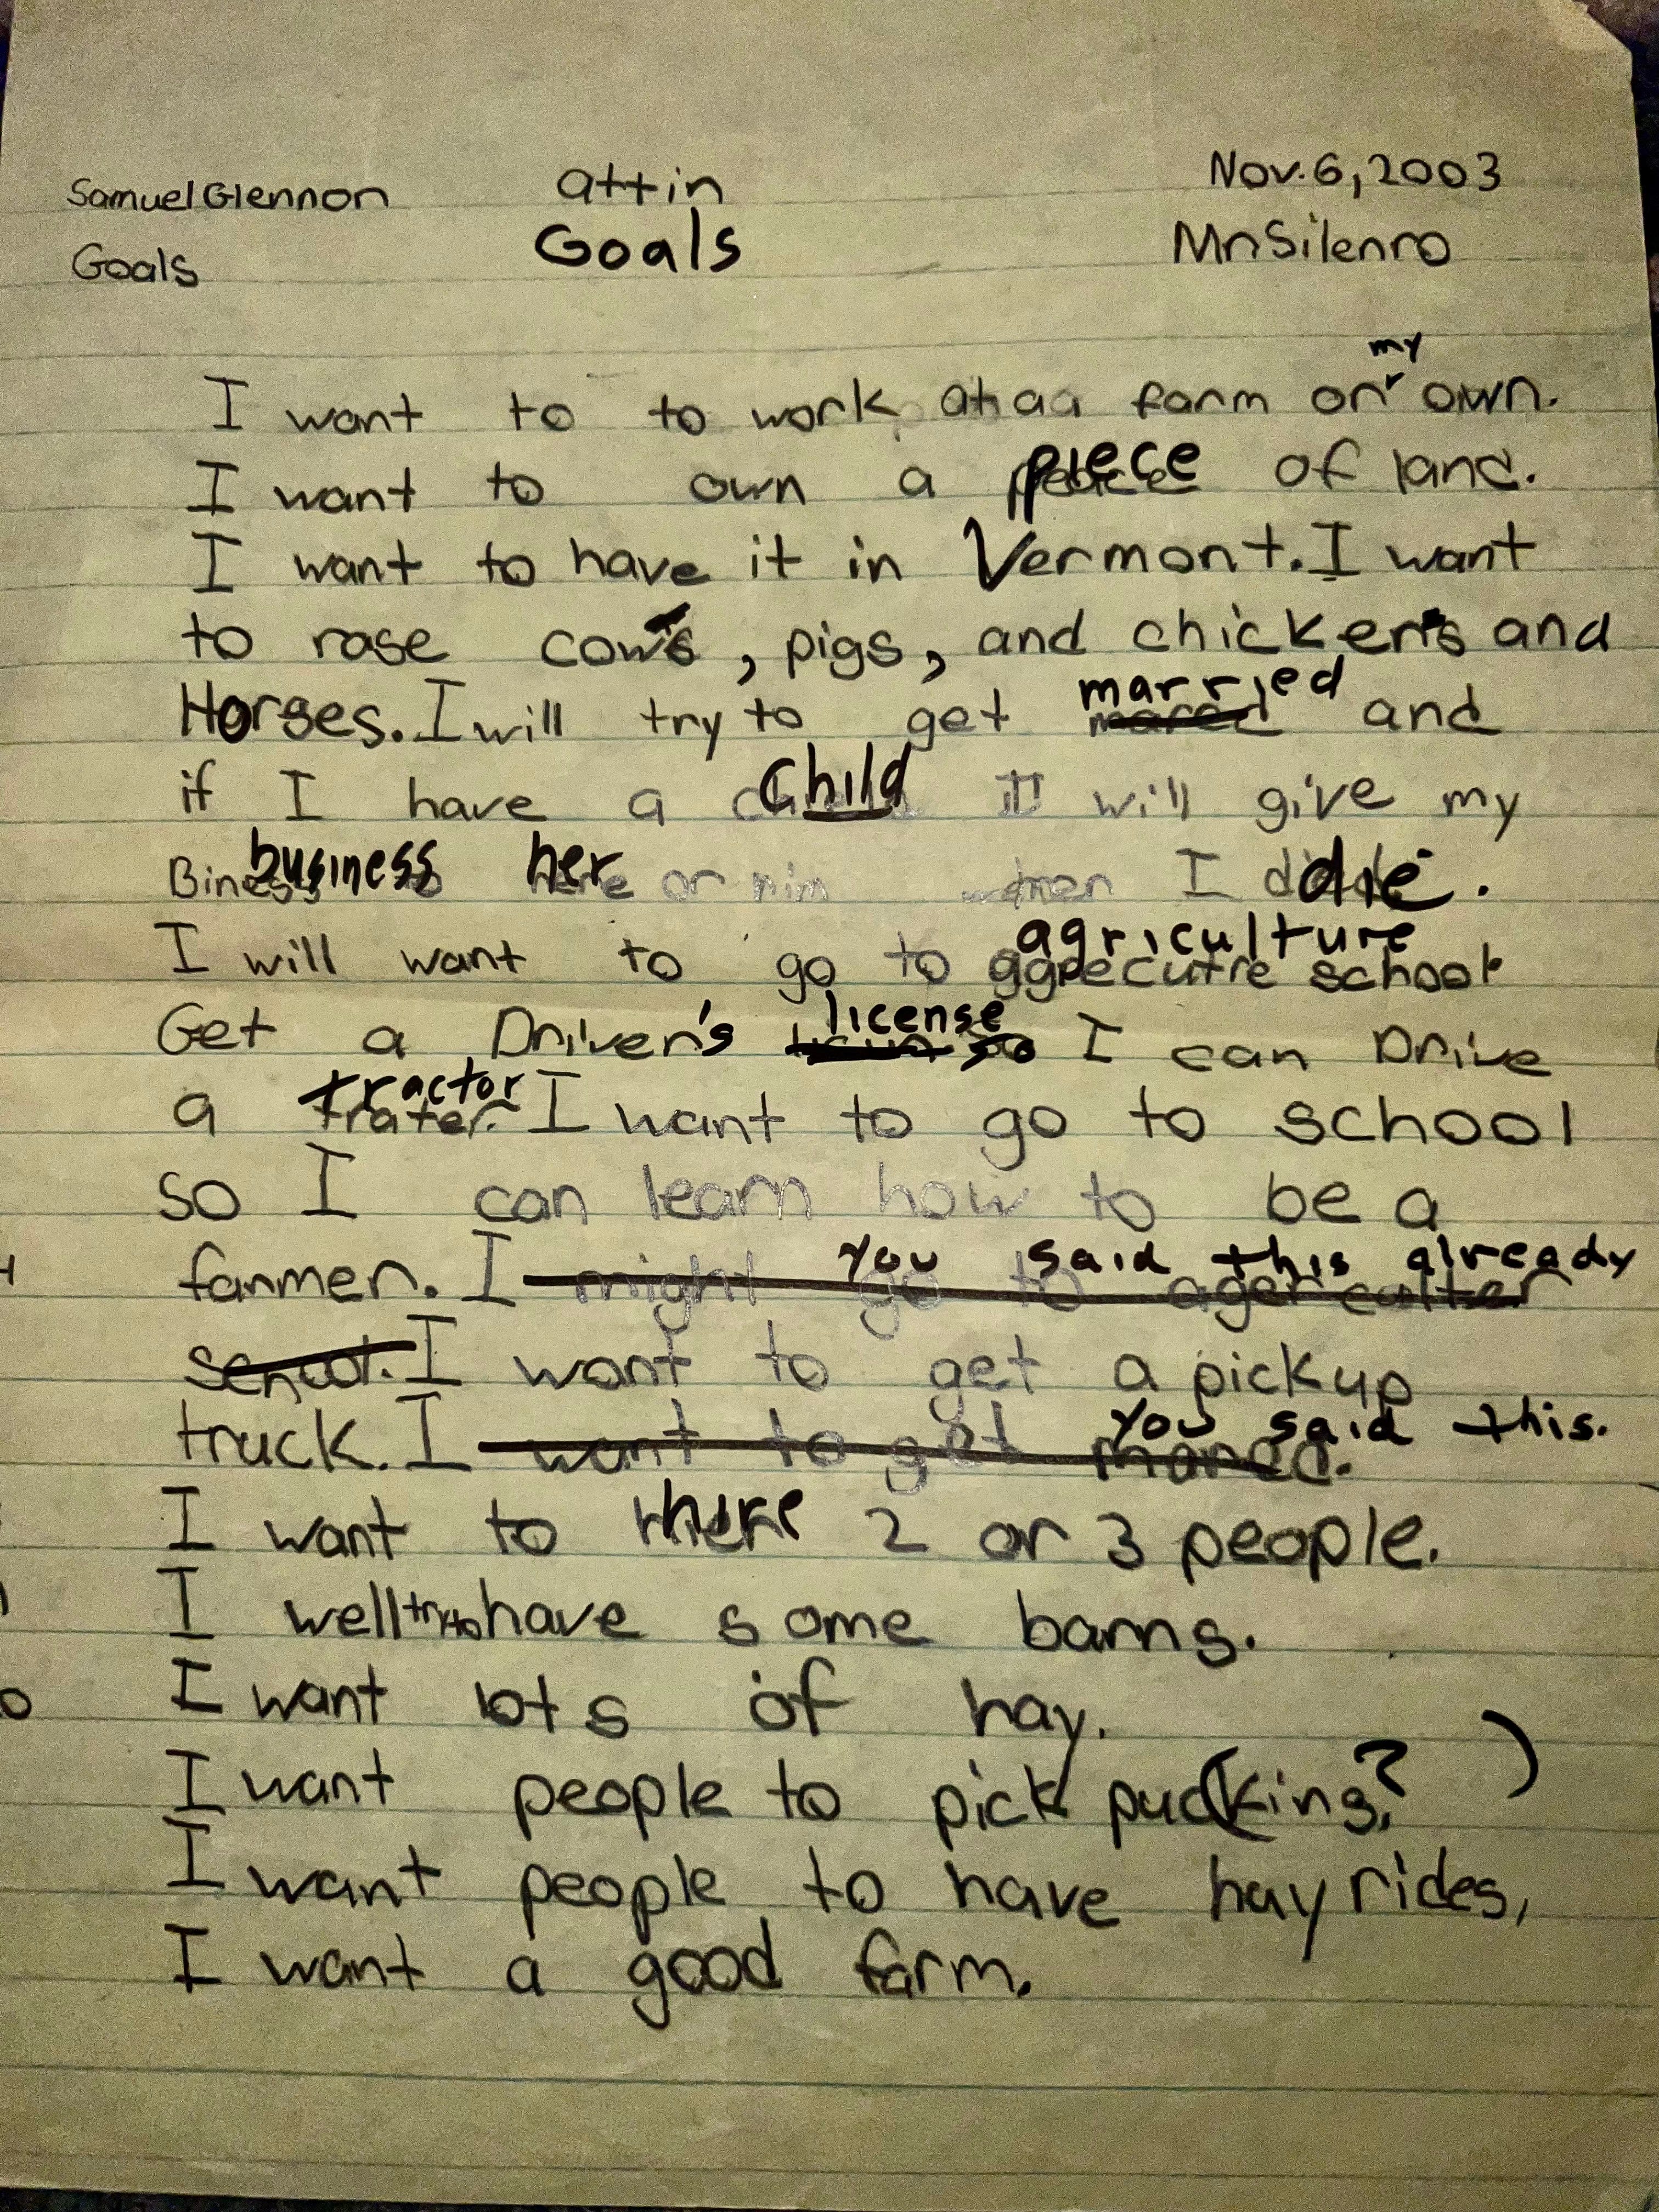 Samuel Glennon attin Nov. 6, 2003
Goals Goals Mr Silenro
my
I want to to work at a farm on own.
I want to own a piece of land.
I want to have it in Vermont. I want
to rase cows, pigs, and chickens and
married
Horses. I will try to get mared and
if I have a child I will give my
business her or him when I die.
agriculture
I will want to go to aggrecutre school
license
Get a Driver's so I can Drive
tractor
a trater. I want to go to school
so I can learn how to be a
you said this already
farmer. I might go to agerculter
school. I want to get a pickup
you said this.
truck. I want to get mared.
I want to hire 2 or 3 people.
I well try to have some barns.
I want lots of hay.
I want people to pick pucking? )
I want people to have hay rides,
I want a good farm.